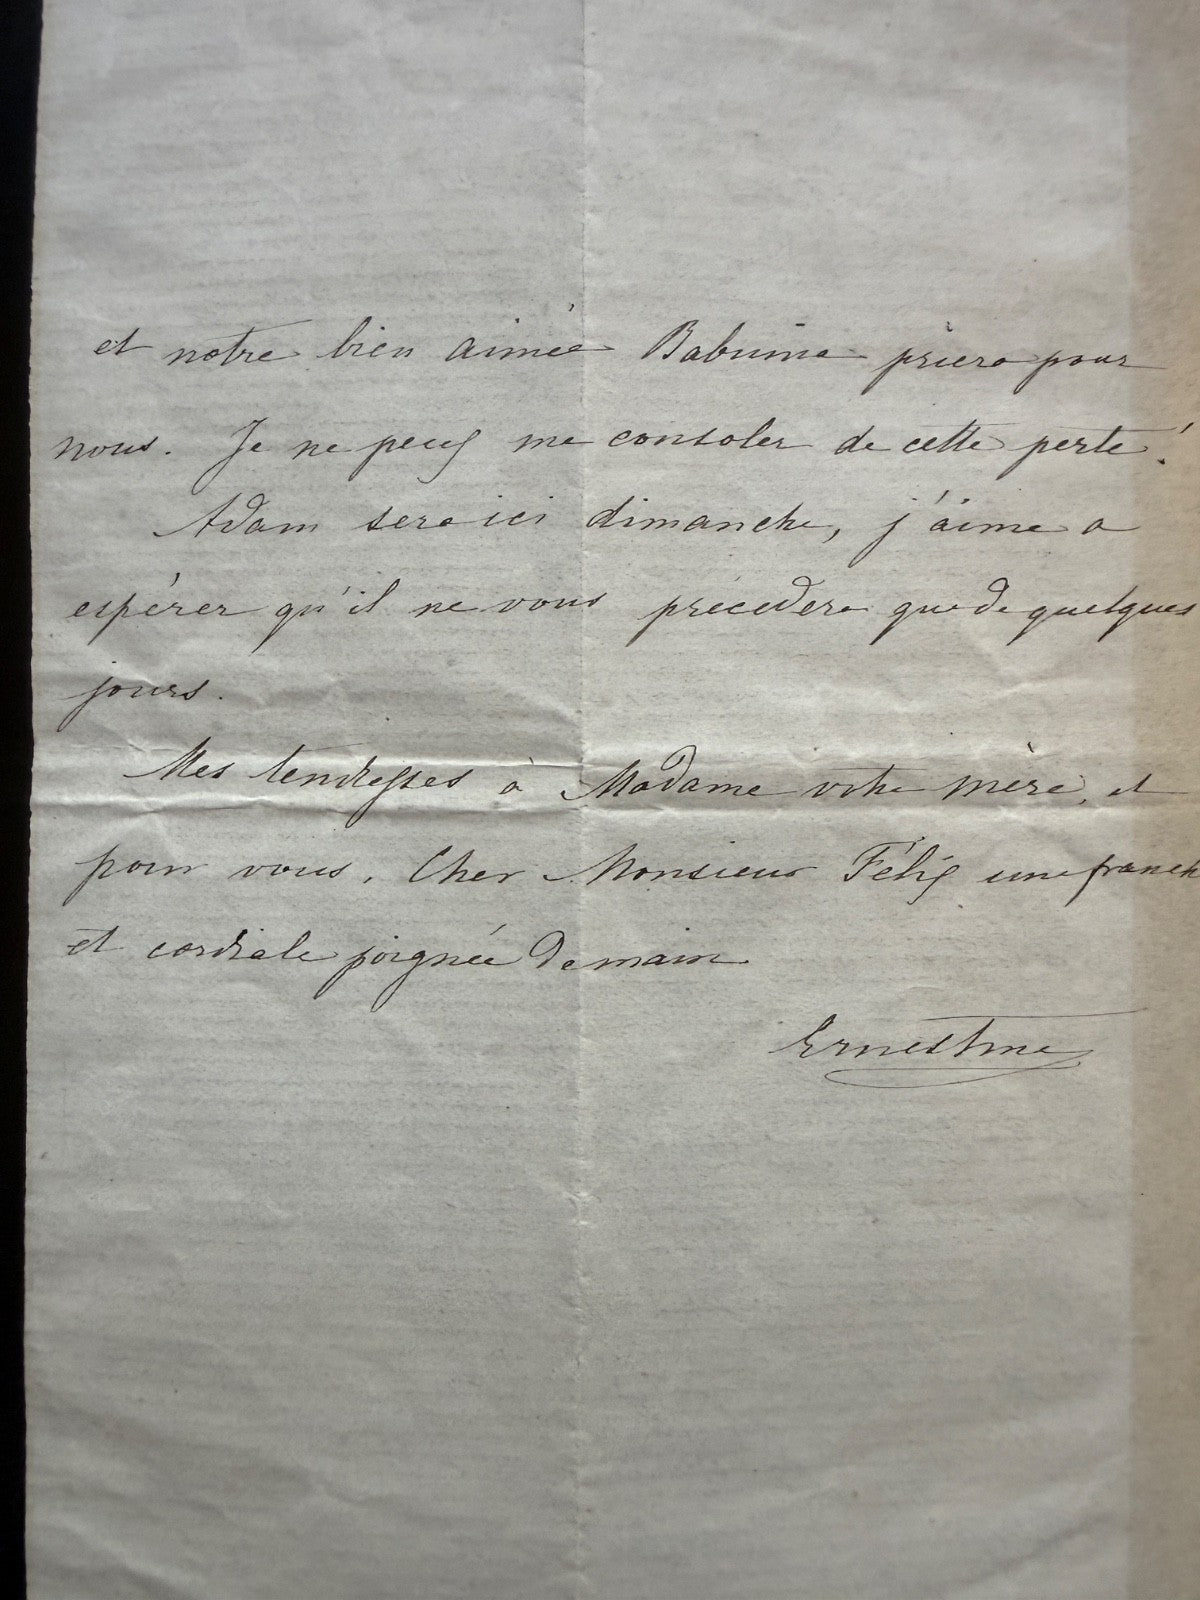 et notre bien aimée Babunia priera pour
nous. Je ne peux me consoler de cette perte!
Adam sera ici dimanche, j'aime a
espérer qu'il ne vous précédera que de quelques
jours.
Mes tendresses à Madame votre mère, et
pour vous, Cher Monsieur Félix une franch
et cordiale poignée de main
Ernestine